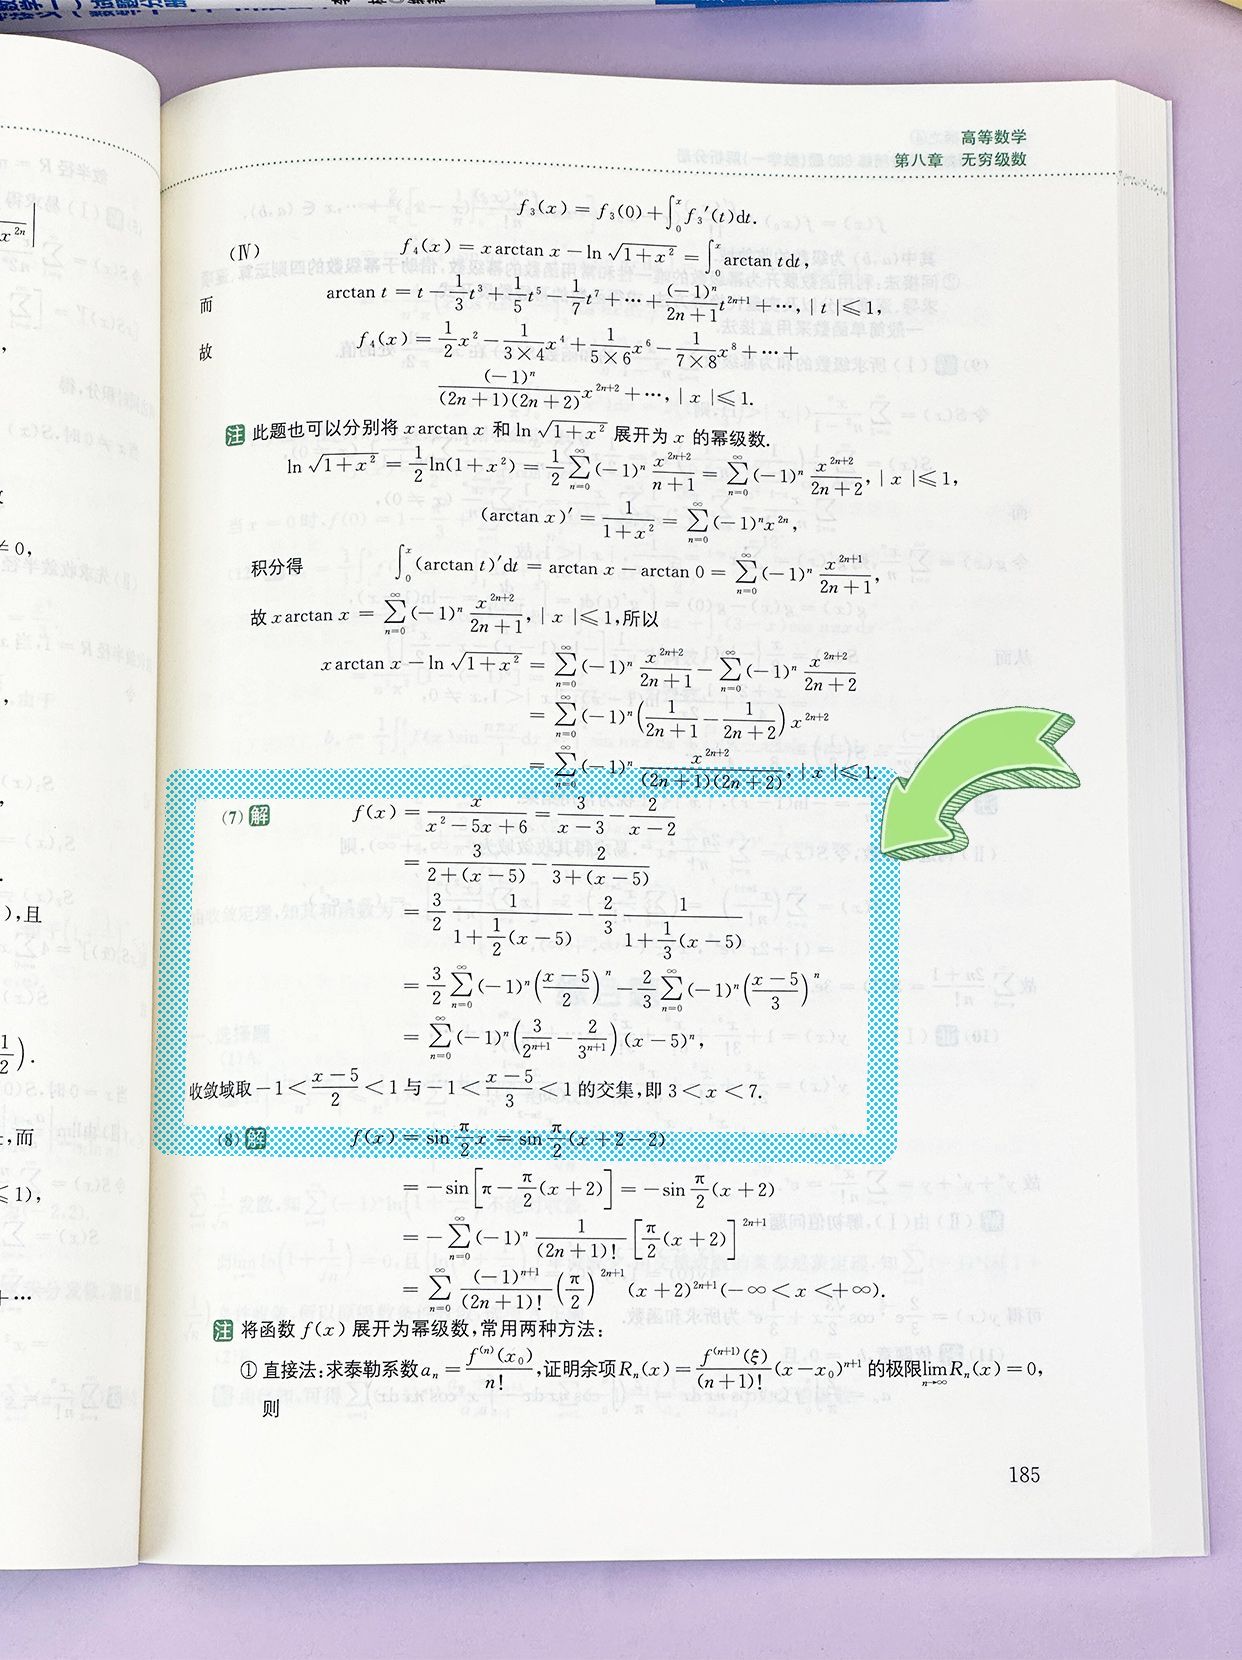 高等数学
第八章 无穷级数
f₃(x) = f₃(0) + ∫₀ˣ f₃′(t)dt.
(Ⅳ) f₄(x) = x arctan x − ln √(1+x²) = ∫₀ˣ arctan t dt,
而 arctan t = t − 1/3 t³ + 1/5 t⁵ − 1/7 t⁷ + ⋯ + (−1)ⁿ/(2n+1) t²ⁿ⁺¹ + ⋯, | t | ⩽ 1,
故 f₄(x) = 1/2 x² − 1/(3×4) x⁴ + 1/(5×6) x⁶ − 1/(7×8) x⁸ + ⋯ +
(−1)ⁿ/((2n+1)(2n+2)) x²ⁿ⁺² + ⋯, | x | ⩽ 1.
注 此题也可以分别将 x arctan x 和 ln √(1+x²) 展开为 x 的幂级数.
ln √(1+x²) = 1/2 ln(1+x²) = 1/2 ∑_{n=0}^{∞} (−1)ⁿ x²ⁿ⁺²/(n+1) = ∑_{n=0}^{∞} (−1)ⁿ x²ⁿ⁺²/(2n+2), | x | ⩽ 1,
(arctan x)′ = 1/(1+x²) = ∑_{n=0}^{∞} (−1)ⁿx²ⁿ,
积分得 ∫₀ˣ (arctan t)′dt = arctan x − arctan 0 = ∑_{n=0}^{∞} (−1)ⁿ x²ⁿ⁺¹/(2n+1),
故 x arctan x = ∑_{n=0}^{∞} (−1)ⁿ x²ⁿ⁺²/(2n+1), | x | ⩽ 1,所以
x arctan x − ln √(1+x²) = ∑_{n=0}^{∞} (−1)ⁿ x²ⁿ⁺²/(2n+1) − ∑_{n=0}^{∞} (−1)ⁿ x²ⁿ⁺²/(2n+2)
= ∑_{n=0}^{∞} (−1)ⁿ (1/(2n+1) − 1/(2n+2)) x²ⁿ⁺²
= ∑_{n=0}^{∞} (−1)ⁿ x²ⁿ⁺²/((2n+1)(2n+2)), | x | ⩽ 1.
(7) 解 f(x) = x/(x²−5x+6) = 3/(x−3) − 2/(x−2)
= 3/(2+(x−5)) − 2/(3+(x−5))
= 3/2 · 1/(1+1/2(x−5)) − 2/3 · 1/(1+1/3(x−5))
= 3/2 ∑_{n=0}^{∞} (−1)ⁿ ((x−5)/2)ⁿ − 2/3 ∑_{n=0}^{∞} (−1)ⁿ ((x−5)/3)ⁿ
= ∑_{n=0}^{∞} (−1)ⁿ (3/2ⁿ⁺¹ − 2/3ⁿ⁺¹) (x−5)ⁿ,
收敛域取 −1 < (x−5)/2 < 1 与 −1 < (x−5)/3 < 1 的交集,即 3 < x < 7.
(8) 解 f(x) = sin π/2 x = sin π/2 (x+2−2)
= −sin[π − π/2 (x+2)] = −sin π/2 (x+2)
= −∑_{n=0}^{∞} (−1)ⁿ 1/(2n+1)! [π/2 (x+2)]²ⁿ⁺¹
= ∑_{n=0}^{∞} (−1)ⁿ⁺¹/(2n+1)! (π/2)²ⁿ⁺¹ (x+2)²ⁿ⁺¹ (−∞ < x < +∞).
注 将函数 f(x) 展开为幂级数,常用两种方法:
① 直接法:求泰勒系数 aₙ = f⁽ⁿ⁾(x₀)/n!,证明余项 Rₙ(x) = f⁽ⁿ⁺¹⁾(ξ)/(n+1)! (x−x₀)ⁿ⁺¹ 的极限 lim_{n→∞} Rₙ(x) = 0,
则
185